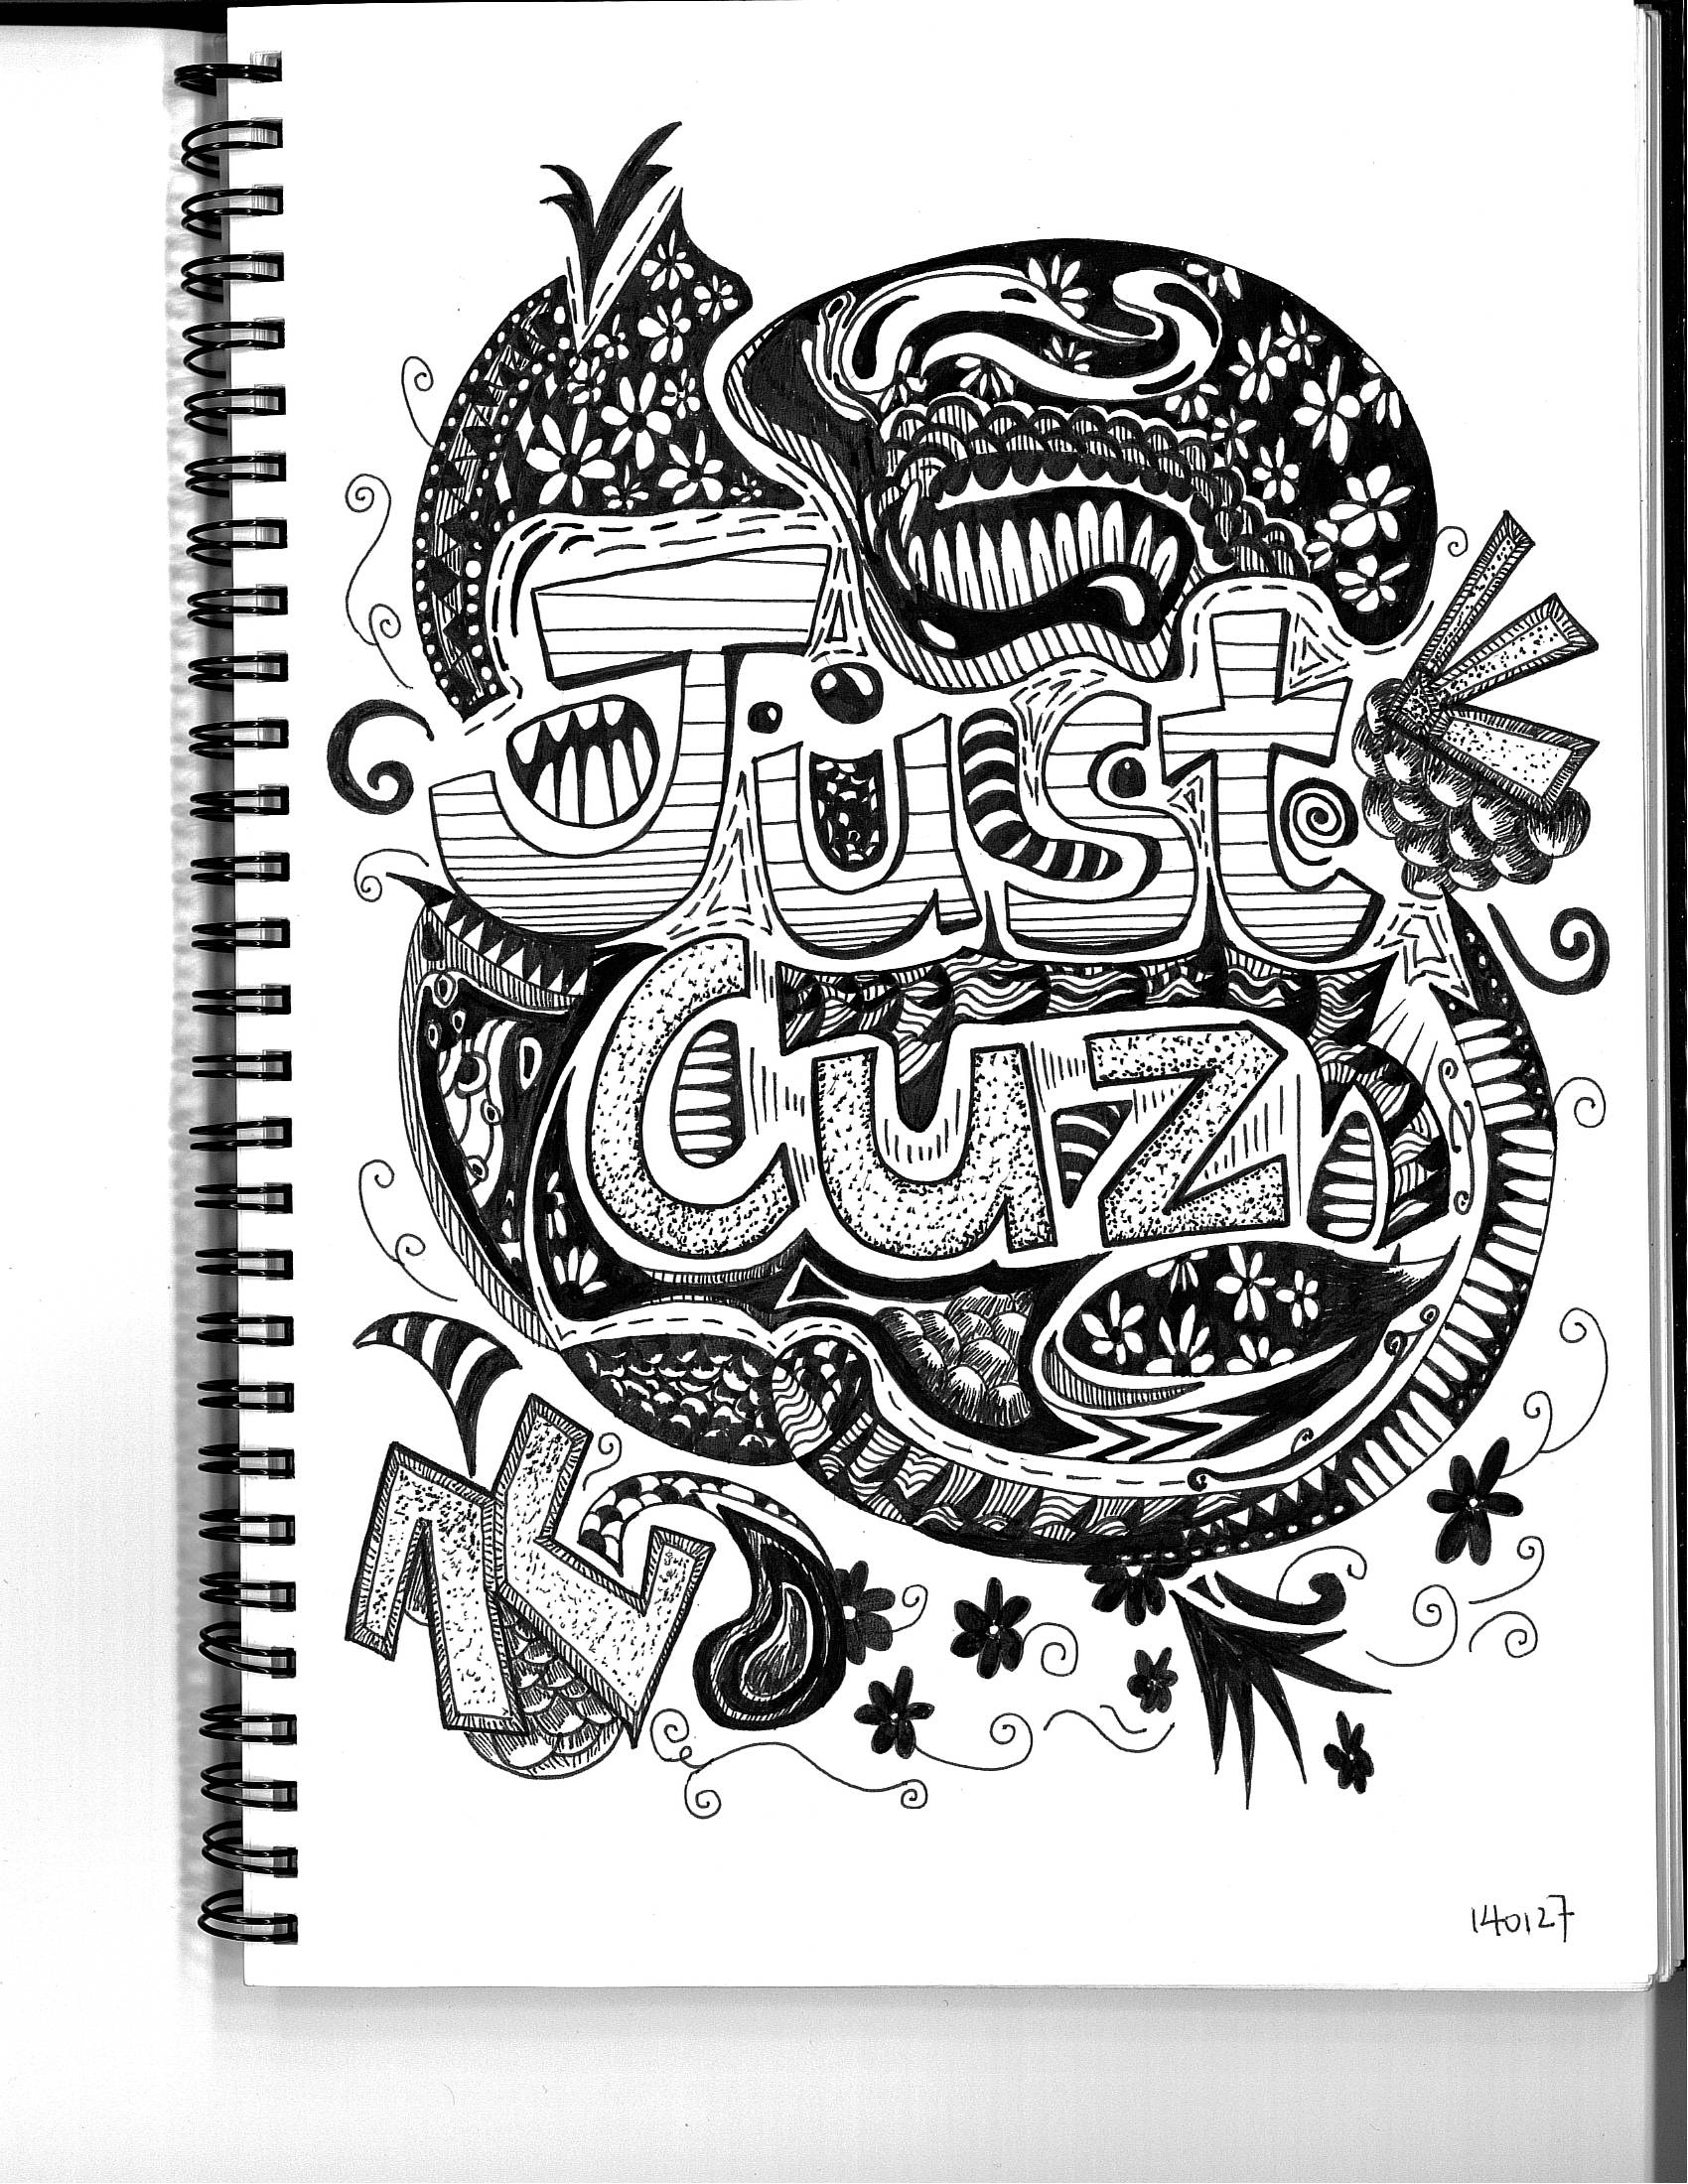 Just
Cuz
140127